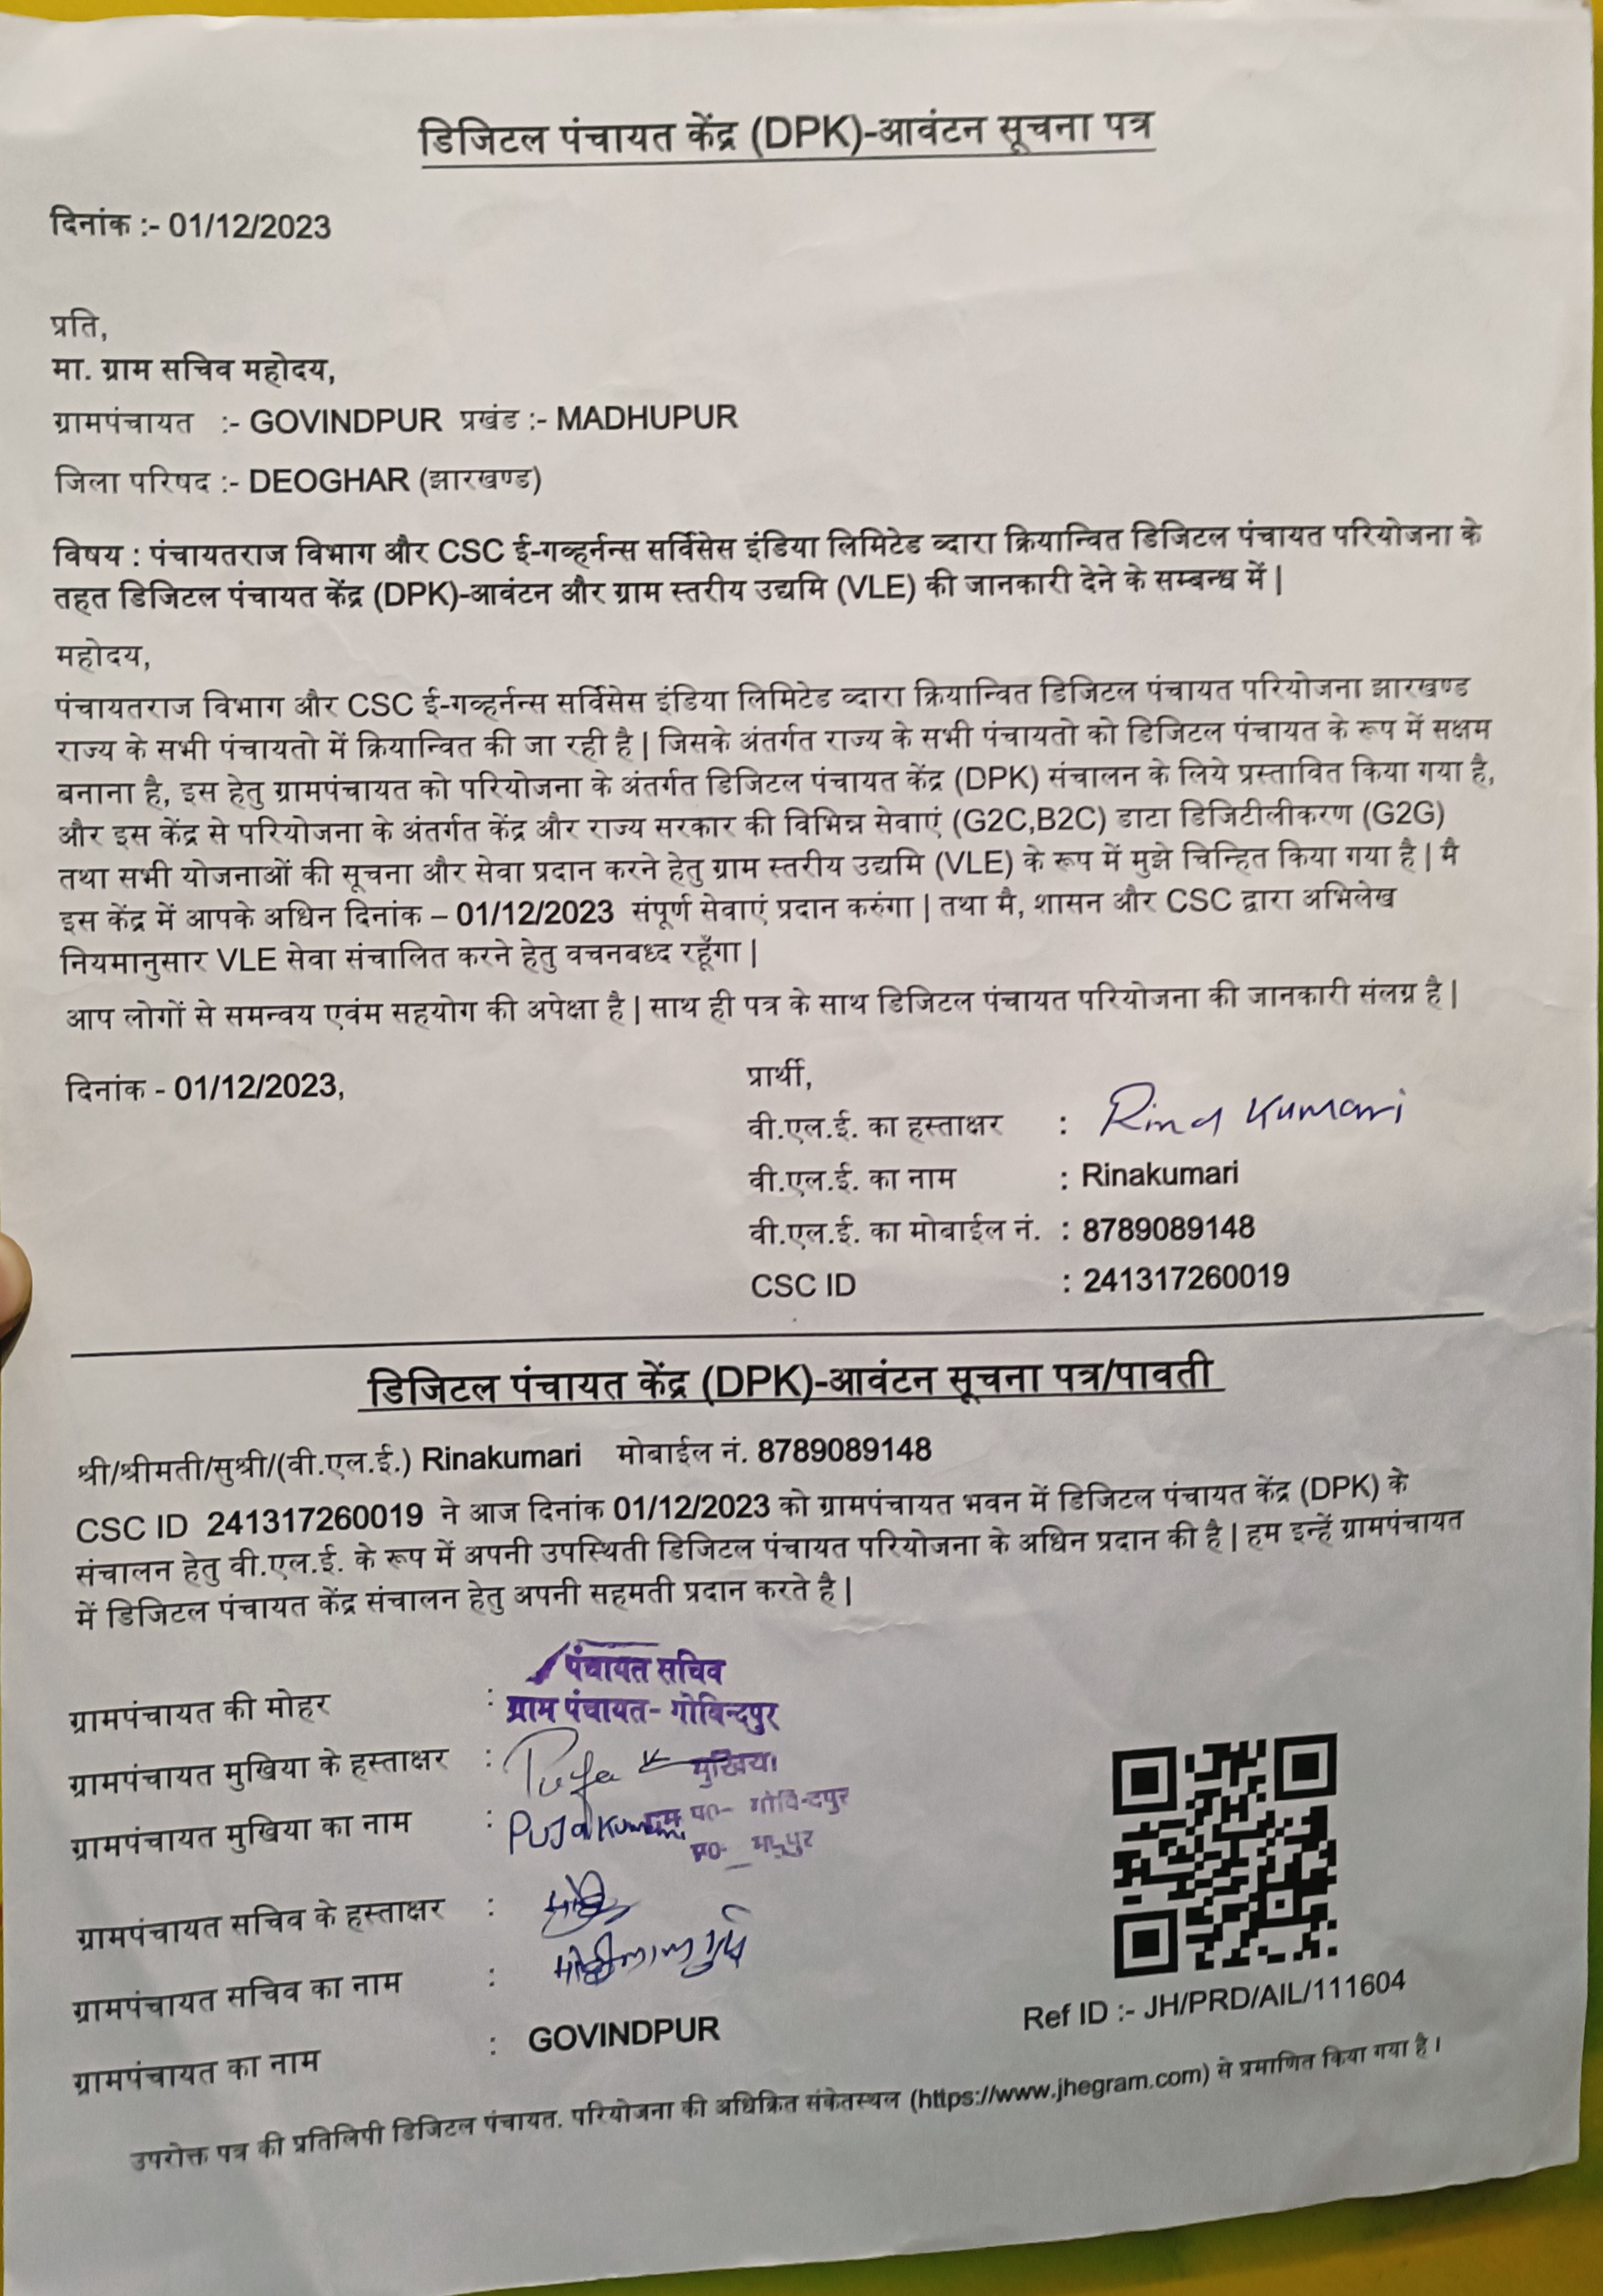 डिजिटल पंचायत केंद्र (DPK)-आवंटन सूचना पत्र
दिनांक :- 01/12/2023
प्रति,
मा. ग्राम सचिव महोदय,
ग्रामपंचायत :- GOVINDPUR प्रखंड :- MADHUPUR
जिला परिषद :- DEOGHAR (झारखण्ड)
विषय : पंचायतराज विभाग और CSC ई-गव्हर्नन्स सर्विसेस इंडिया लिमिटेड व्दारा क्रियान्वित डिजिटल पंचायत परियोजना के
तहत डिजिटल पंचायत केंद्र (DPK)-आवंटन और ग्राम स्तरीय उद्यमि (VLE) की जानकारी देने के सम्बन्ध में |
महोदय,
पंचायतराज विभाग और CSC ई-गव्हर्नन्स सर्विसेस इंडिया लिमिटेड व्दारा क्रियान्वित डिजिटल पंचायत परियोजना झारखण्ड
राज्य के सभी पंचायतो में क्रियान्वित की जा रही है | जिसके अंतर्गत राज्य के सभी पंचायतो को डिजिटल पंचायत के रूप में सक्षम
बनाना है, इस हेतु ग्रामपंचायत को परियोजना के अंतर्गत डिजिटल पंचायत केंद्र (DPK) संचालन के लिये प्रस्तावित किया गया है,
और इस केंद्र से परियोजना के अंतर्गत केंद्र और राज्य सरकार की विभिन्न सेवाएं (G2C,B2C) डाटा डिजिटीलीकरण (G2G)
तथा सभी योजनाओं की सूचना और सेवा प्रदान करने हेतु ग्राम स्तरीय उद्यमि (VLE) के रूप में मुझे चिन्हित किया गया है | मै
इस केंद्र में आपके अधिन दिनांक – 01/12/2023 संपूर्ण सेवाएं प्रदान करुंगा | तथा मै, शासन और CSC द्वारा अभिलेख
नियमानुसार VLE सेवा संचालित करने हेतु वचनबध्द रहूँगा |
आप लोगों से समन्वय एवंम सहयोग की अपेक्षा है | साथ ही पत्र के साथ डिजिटल पंचायत परियोजना की जानकारी संलग्न है |
दिनांक - 01/12/2023,
प्रार्थी,
वी.एल.ई. का हस्ताक्षर : Rina Kumari
वी.एल.ई. का नाम : Rinakumari
वी.एल.ई. का मोबाईल नं. : 8789089148
CSC ID : 241317260019
डिजिटल पंचायत केंद्र (DPK)-आवंटन सूचना पत्र/पावती
श्री/श्रीमती/सुश्री/(वी.एल.ई.) Rinakumari मोबाईल नं. 8789089148
CSC ID 241317260019 ने आज दिनांक 01/12/2023 को ग्रामपंचायत भवन में डिजिटल पंचायत केंद्र (DPK) के
संचालन हेतु वी.एल.ई. के रूप में अपनी उपस्थिती डिजिटल पंचायत परियोजना के अधिन प्रदान की है | हम इन्हें ग्रामपंचायत
में डिजिटल पंचायत केंद्र संचालन हेतु अपनी सहमती प्रदान करते है |
पंचायत सचिव
ग्रामपंचायत की मोहर : ग्राम पंचायत- गोविन्दपुर
ग्रामपंचायत मुखिया के हस्ताक्षर : Puja मुखिया
ग्रामपंचायत मुखिया का नाम : Puja Kumari ग्राम पं०- गोविन्दपुर
ग्रामपंचायत सचिव के हस्ताक्षर :
ग्रामपंचायत सचिव का नाम :
ग्रामपंचायत का नाम : GOVINDPUR
Ref ID :- JH/PRD/AIL/111604
उपरोक्त पत्र की प्रतिलिपी डिजिटल पंचायत. परियोजना की अधिक्रित संकेतस्थल (https://www.jhegram.com) से प्रमाणित किया गया है।